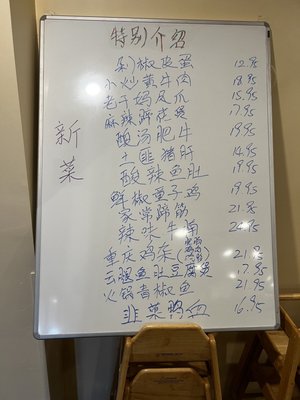 特别介绍
新菜
剁椒皮蛋 12.95
小炒黄牛肉 18.95
老干妈凤爪 15.95
麻辣蹄皮煲 17.95
酸汤肥牛 19.95
土匪猪肝 14.95
酸辣鱼肚 19.95
鲜椒童子鸡 19.95
家常蹄筋 21.95
辣味牛 24.95
重庆鸡杂 21.95
云腿鱼肚豆腐煲 17.95
火锅青椒鱼 21.95
韭菜鸭血 16.95